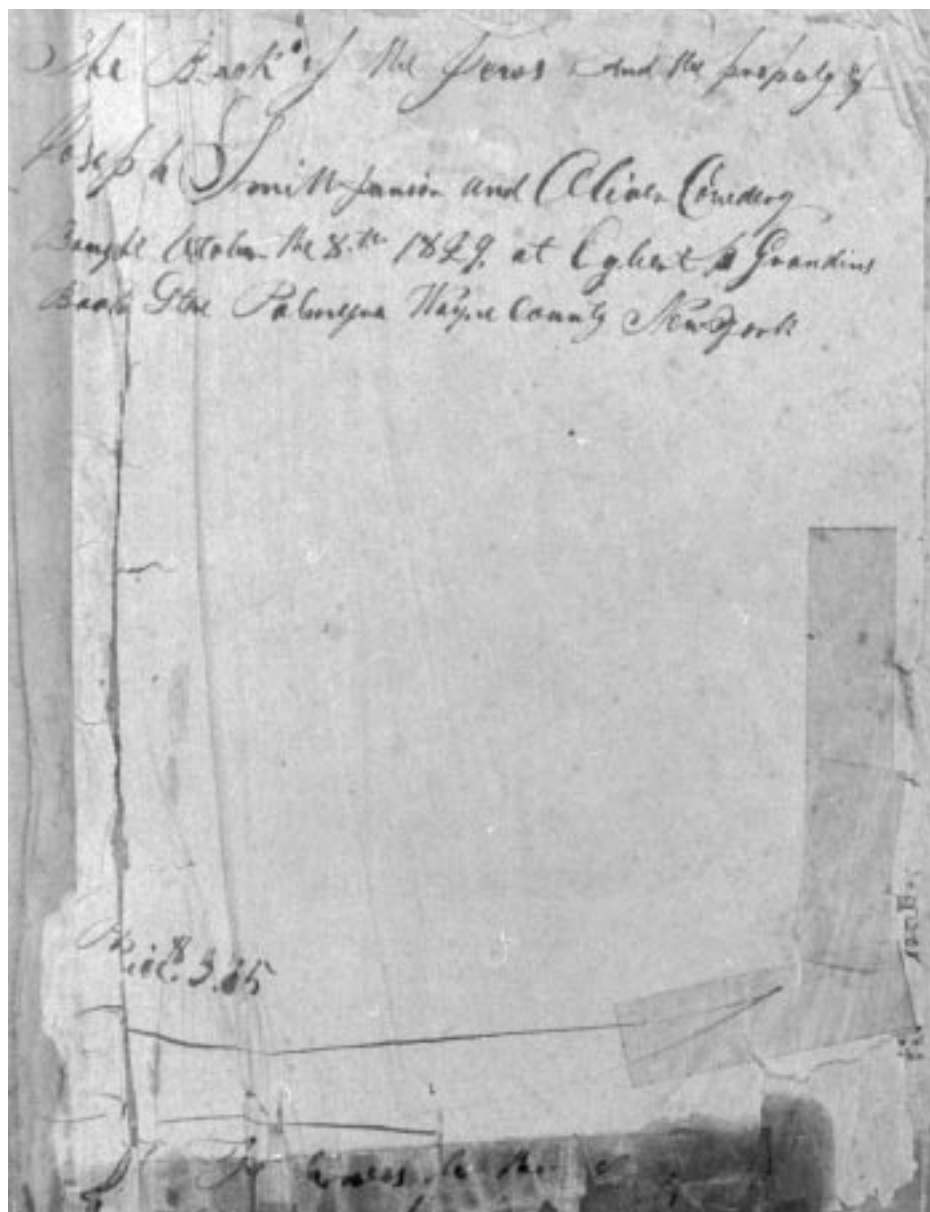 The Book of the Jews And the property of
Joseph Smith Junior and Oliver Cowdery
Bought October the 8th 1829, at Egbert B Grandins
Book Store Palmyra Wayne County New York
Price $3.85
Holiness to the